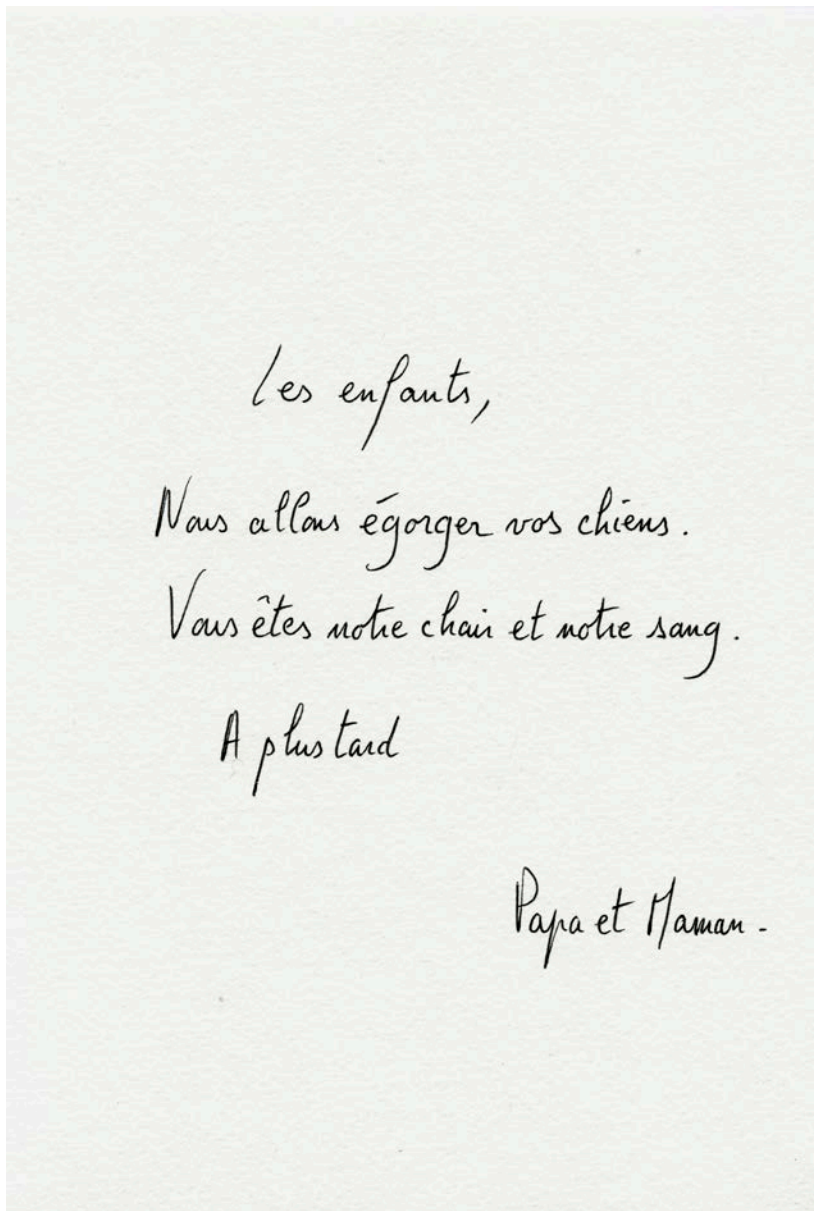 Les enfants,
Nous allons égorger vos chiens.
Vous êtes notre chair et notre sang.
A plus tard
Papa et Maman.